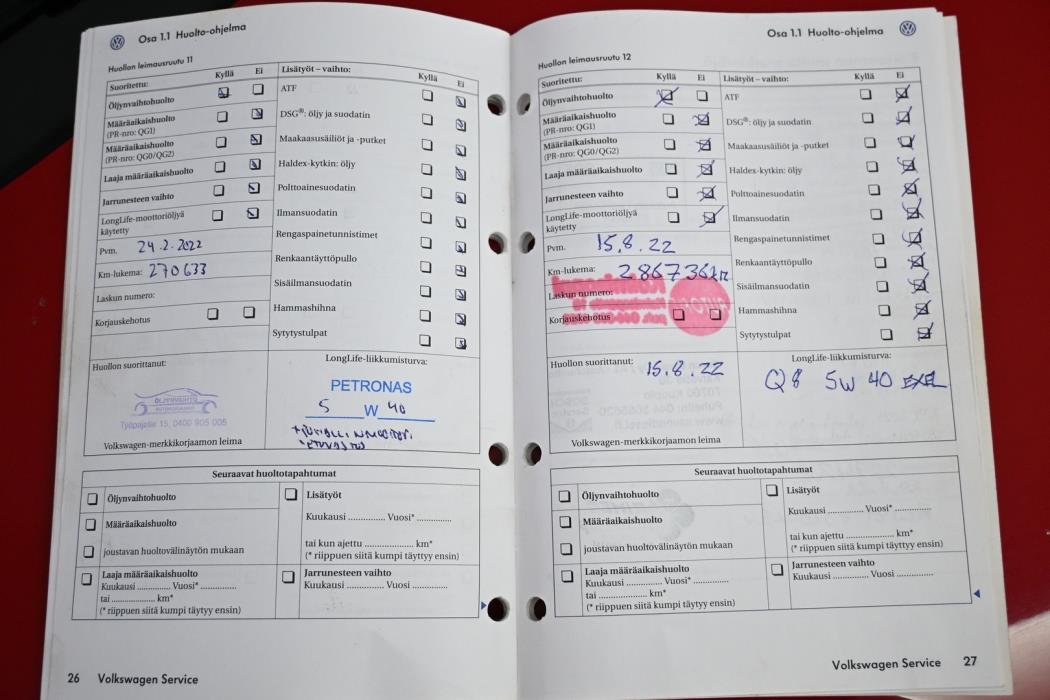 Osa 1.1 Huolto-ohjelma
Huollon leimausruutu 11
Suoritettu: Kyllä Ei
Öljynvaihtohuolto
Määräaikaishuolto
(PR-nro: QG1)
Määräaikaishuolto
(PR-nro: QG0/QG2)
Laaja määräaikaishuolto
Jarrunesteen vaihto
LongLife-moottoriöljyä
käytetty
Pvm. 24.2.2022
Km-lukema: 270633
Laskun numero:
Korjauskehotus
Lisätyöt – vaihto: Kyllä Ei
ATF
DSG®: öljy ja suodatin
Maakaasusäiliöt ja -putket
Haldex-kytkin: öljy
Polttoainesuodatin
Ilmansuodatin
Rengaspainetunnistimet
Renkaantäyttöpullo
Sisäilmansuodatin
Hammashihna
Sytytystulpat
Huollon suorittanut:
Työpajatie 15, 0400 905 005
Volkswagen-merkkikorjaamon leima
LongLife-liikkumisturva:
PETRONAS
5 W 40
Seuraavat huoltotapahtumat
Öljynvaihtohuolto
Määräaikaishuolto
joustavan huoltovälinäytön mukaan
Laaja määräaikaishuolto
Kuukausi .............. Vuosi* ..............
tai .................... km*
(* riippuen siitä kumpi täytyy ensin)
Lisätyöt
Kuukausi .............. Vuosi* ..............
tai kun ajettu .................... km*
(* riippuen siitä kumpi täyttyy ensin)
Jarrunesteen vaihto
Kuukausi .............. Vuosi ..............
26 Volkswagen Service
Osa 1.1 Huolto-ohjelma
Huollon leimausruutu 12
Suoritettu: Kyllä Ei
Öljynvaihtohuolto
Määräaikaishuolto
(PR-nro: QG1)
Määräaikaishuolto
(PR-nro: QG0/QG2)
Laaja määräaikaishuolto
Jarrunesteen vaihto
LongLife-moottoriöljyä
käytetty
Pvm. 15.8.22
Km-lukema: 286736km
Laskun numero:
Korjauskehotus
Lisätyöt – vaihto: Kyllä Ei
ATF
DSG®: öljy ja suodatin
Maakaasusäiliöt ja -putket
Haldex-kytkin: öljy
Polttoainesuodatin
Ilmansuodatin
Rengaspainetunnistimet
Renkaantäyttöpullo
Sisäilmansuodatin
Hammashihna
Sytytystulpat
Huollon suorittanut: 15.8.22
Volkswagen-merkkikorjaamon leima
LongLife-liikkumisturva:
Q8 5W 40 EXEL
Seuraavat huoltotapahtumat
Öljynvaihtohuolto
Määräaikaishuolto
joustavan huoltovälinäytön mukaan
Laaja määräaikaishuolto
Kuukausi .............. Vuosi* ..............
tai .................... km*
(* riippuen siitä kumpi täytyy ensin)
Lisätyöt
Kuukausi .............. Vuosi* ..............
tai kun ajettu .................... km*
(* riippuen siitä kumpi täyttyy ensin)
Jarrunesteen vaihto
Kuukausi .............. Vuosi ..............
Volkswagen Service 27